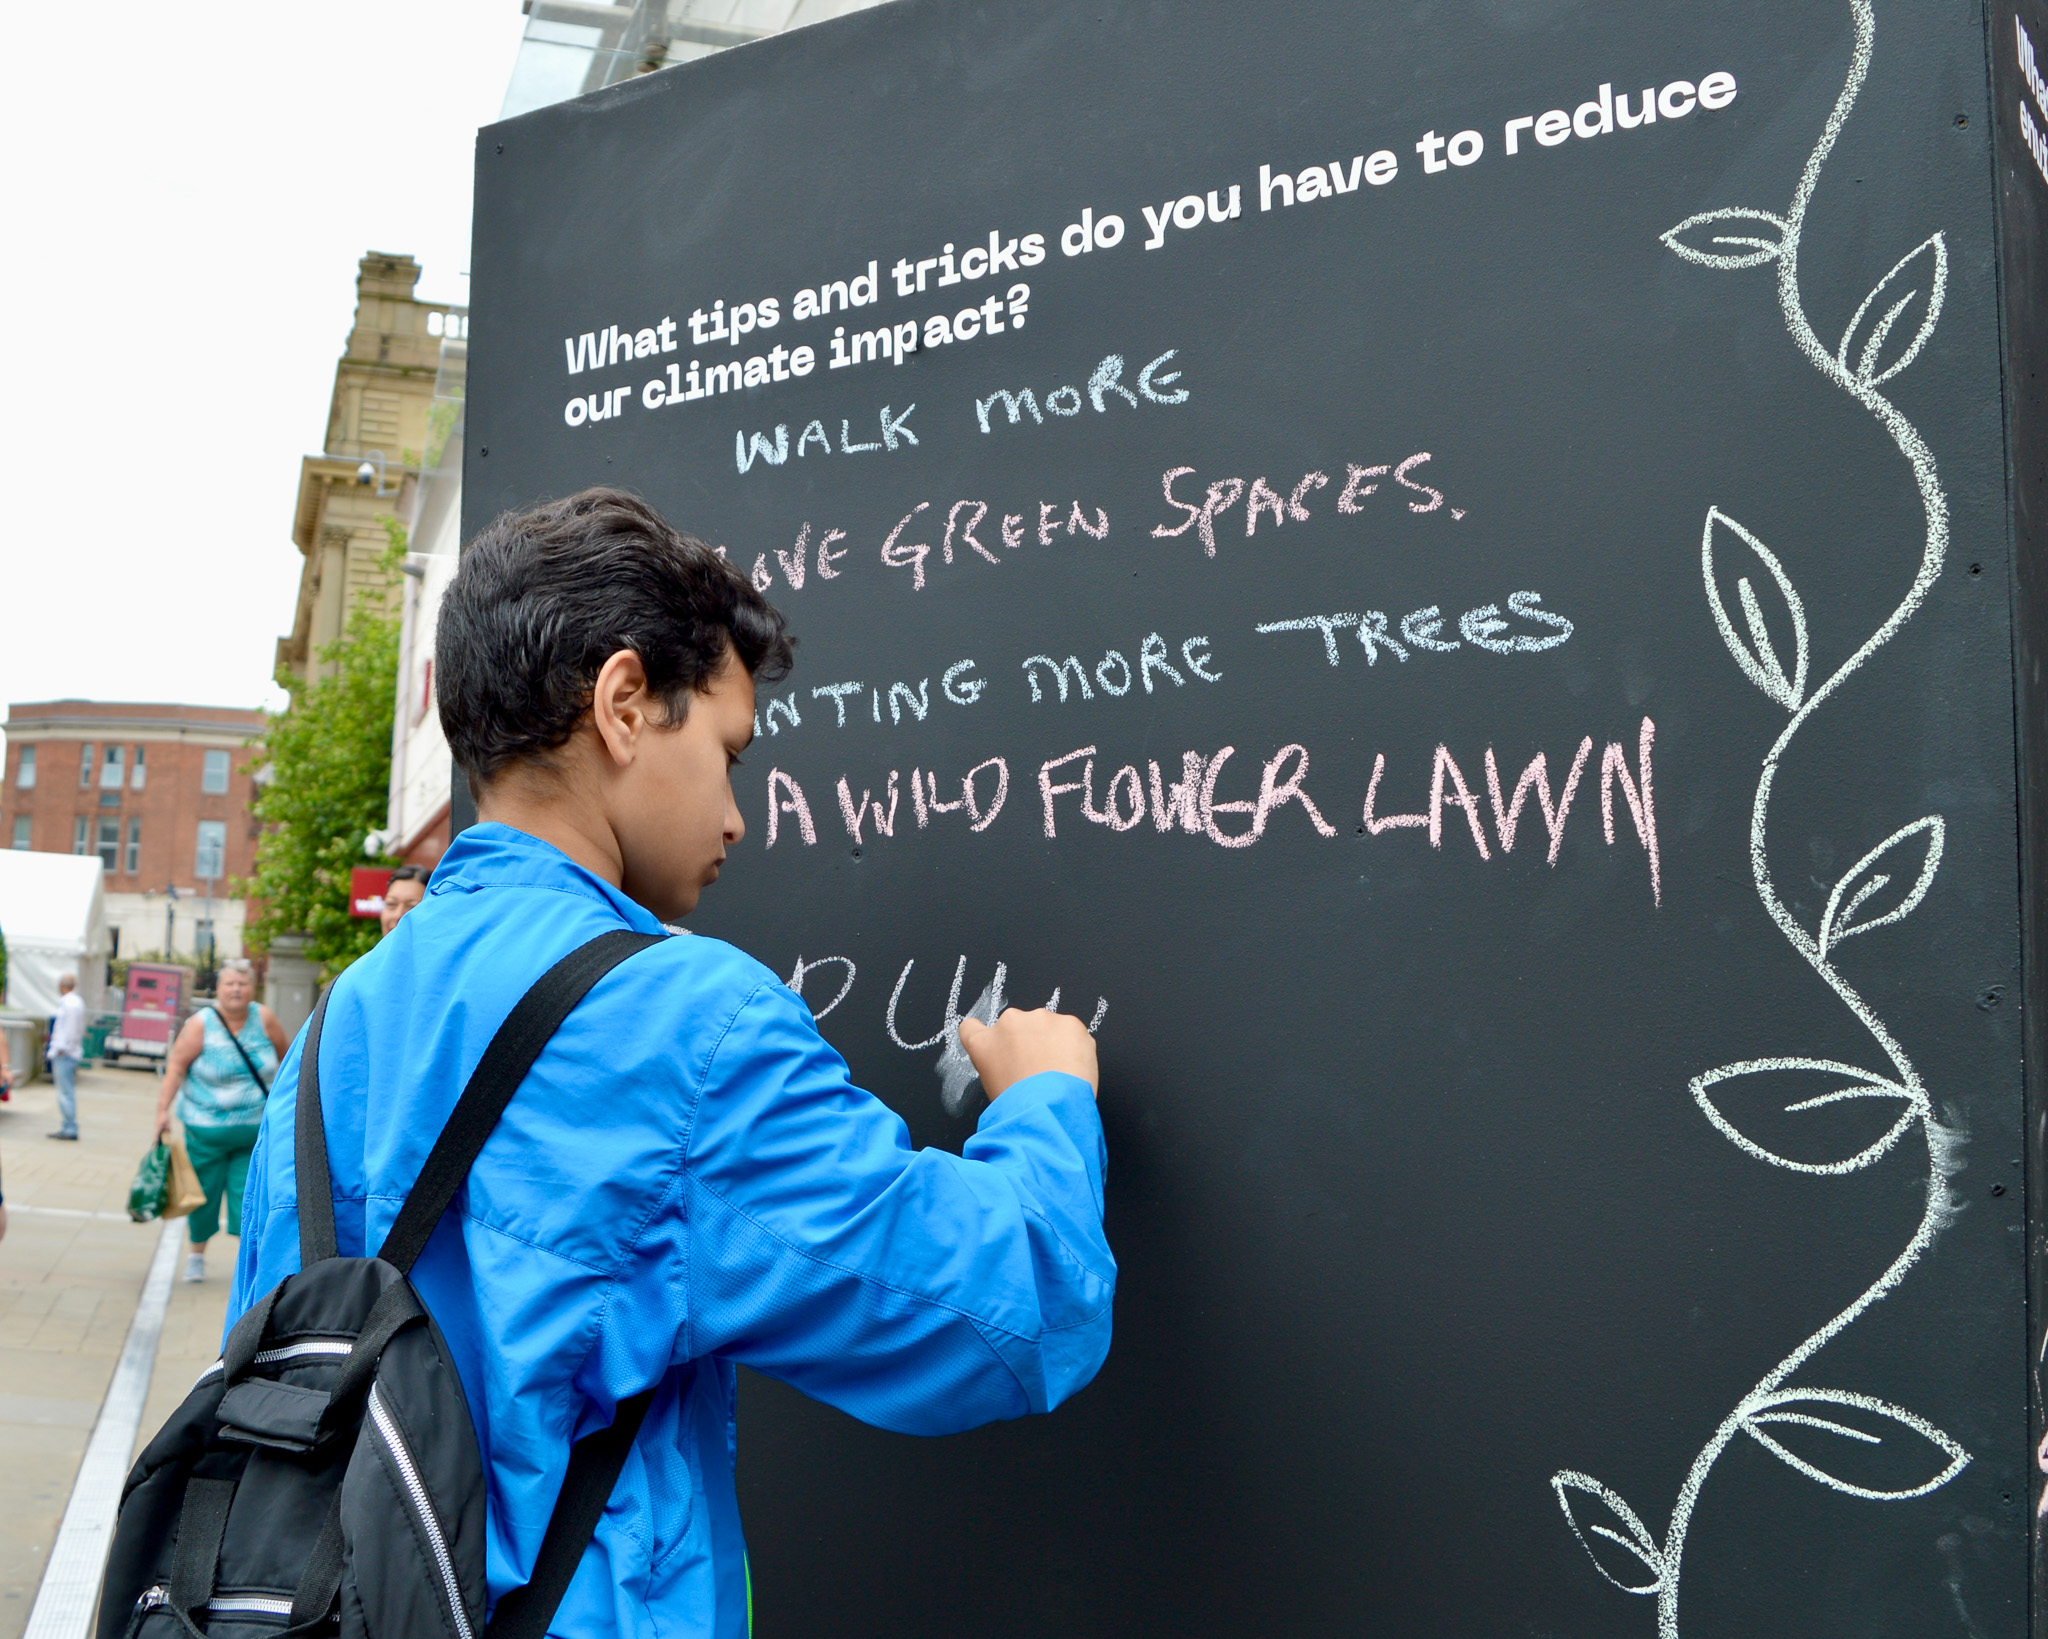 What tips and tricks do you have to reduce
our climate impact?
WALK MORE
GREEN SPACES.
MORE TREES
A WILD FLOWER LAWN